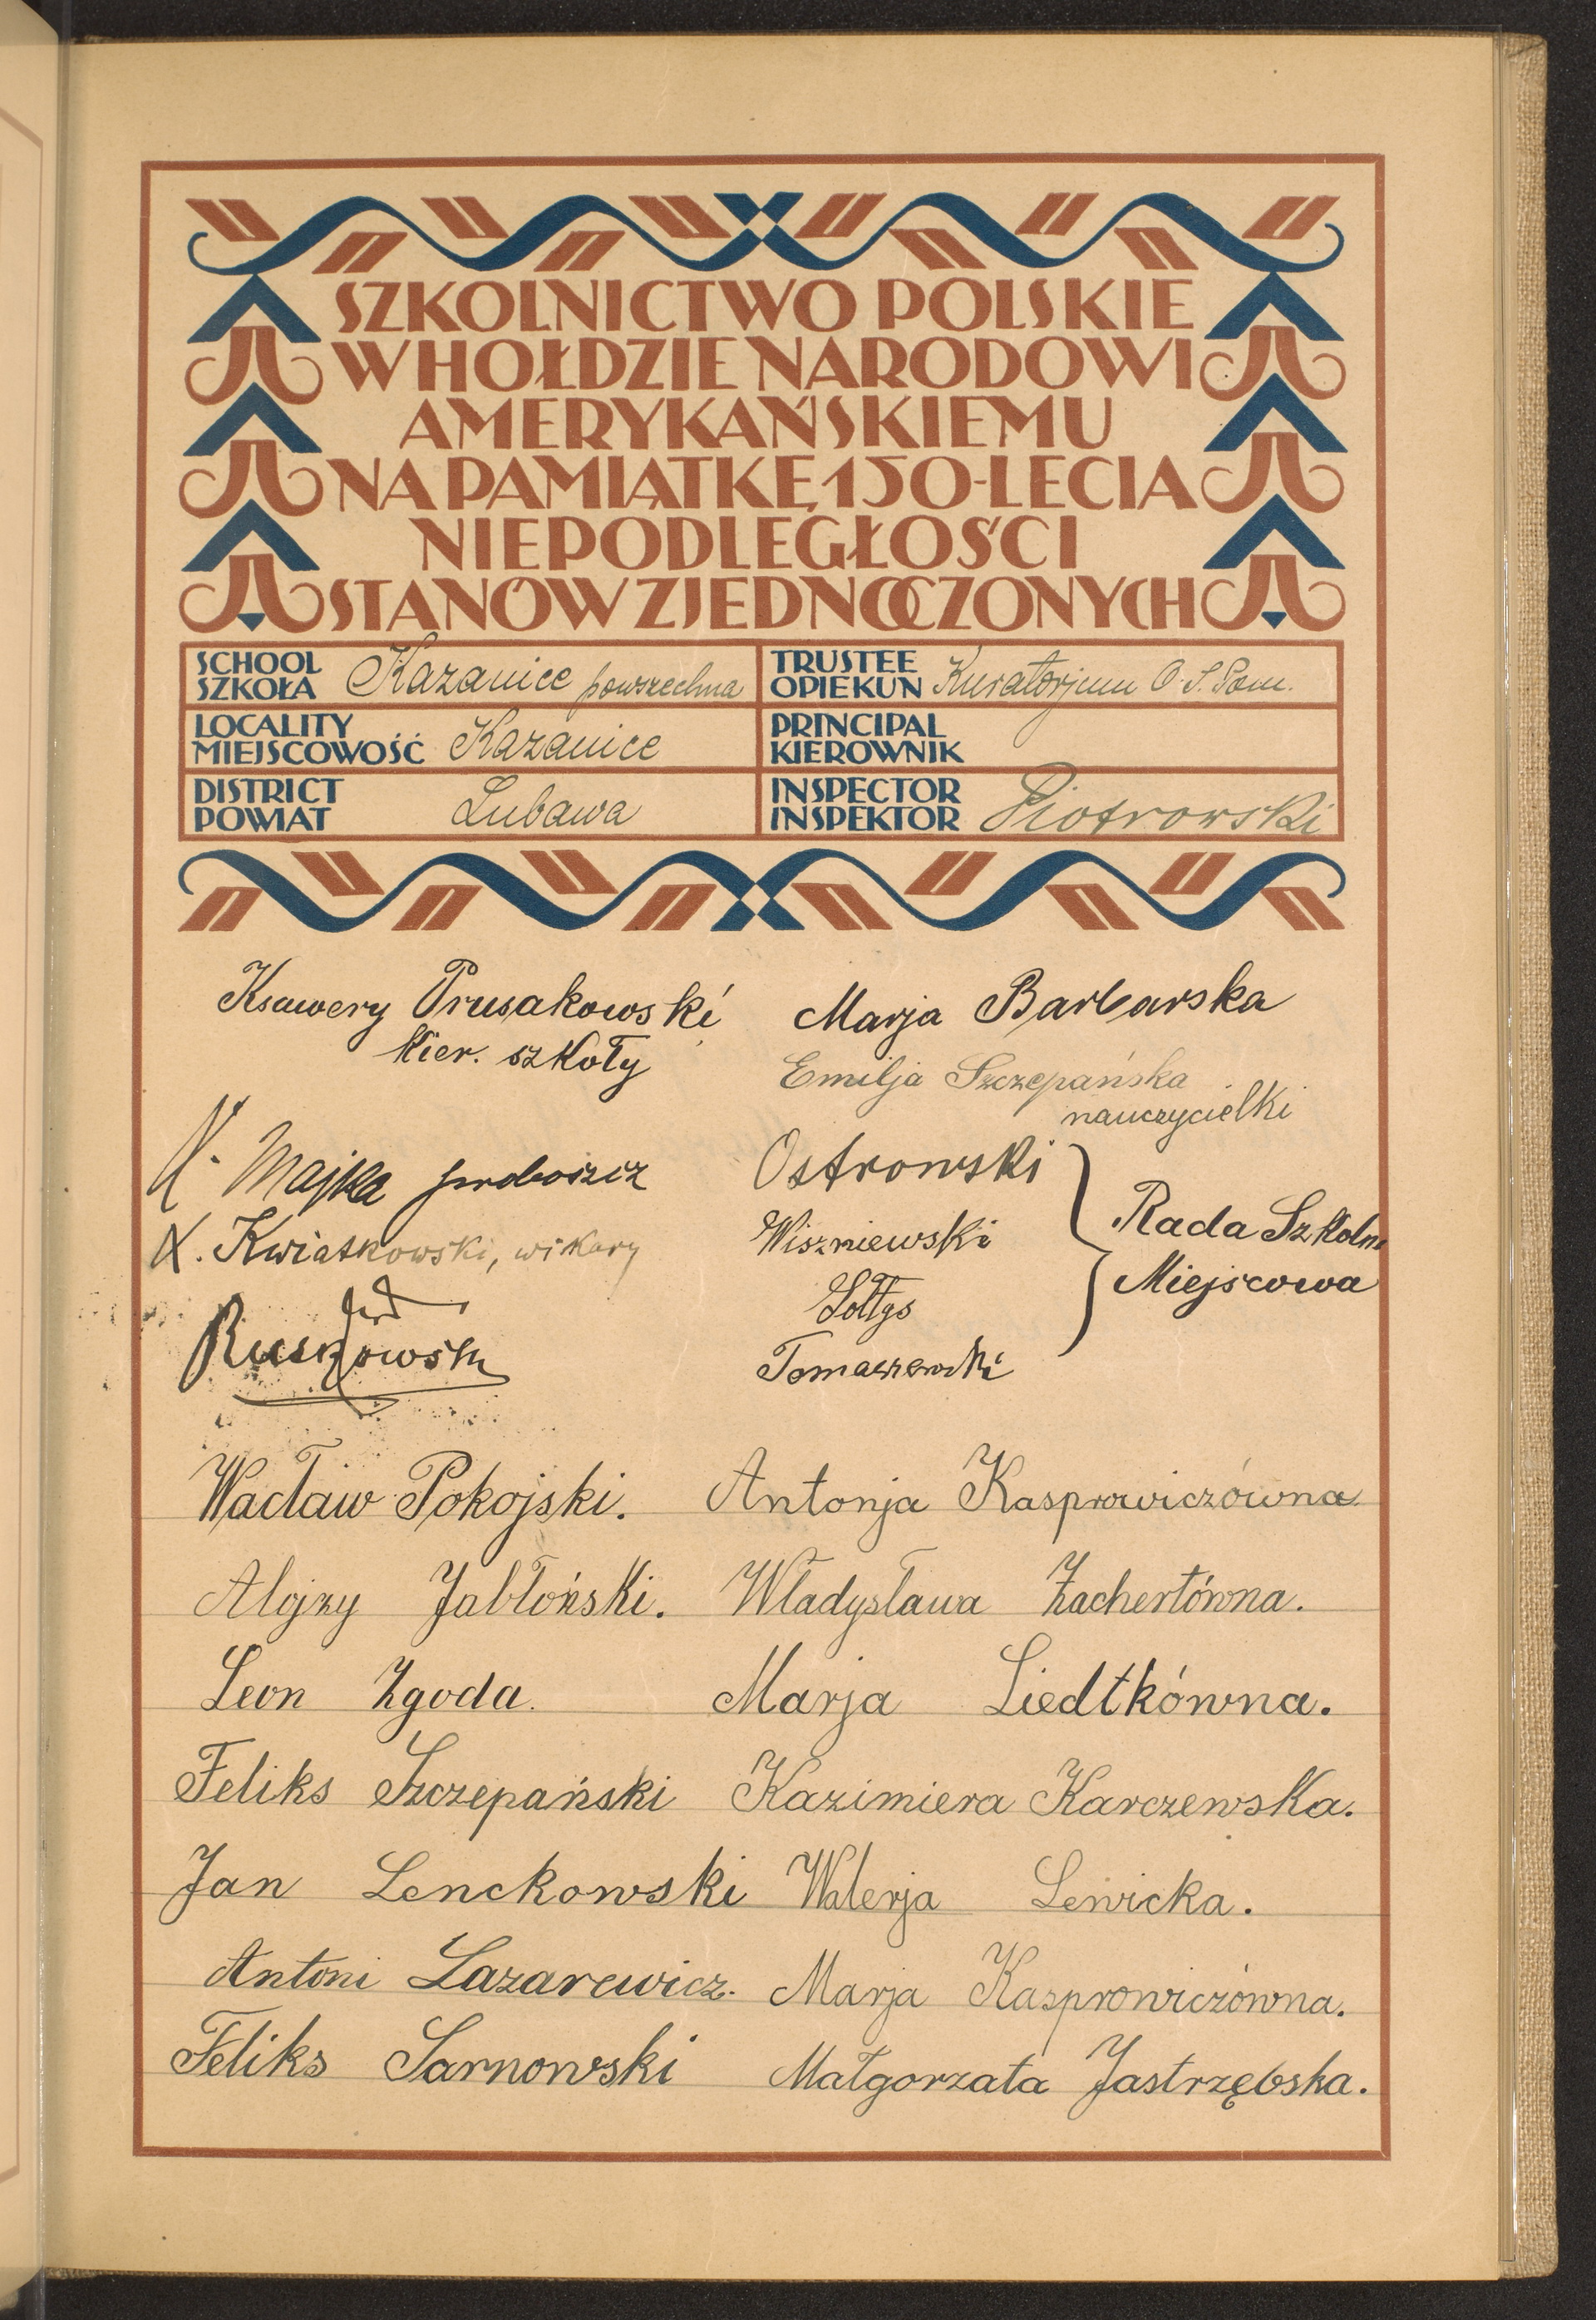 SZKOLNICTWO POLSKIE
W HOŁDZIE NARODOWI
AMERYKAŃSKIEMU
NA PAMIĄTKĘ 150-LECIA
NIEPODLEGŁOŚCI
STANÓW ZJEDNOCZONYCH
SCHOOL
SZKOŁA Kazanice powszechna
TRUSTEE
OPIEKUN Kuratorjum O. S. Pom.
LOCALITY
MIEJSCOWOŚĆ Kazanice
PRINCIPAL
KIEROWNIK
DISTRICT
POWIAT Lubawa
INSPECTOR
INSPEKTOR Piotrowski
Ksawery Prusakowski
Kier. szkoły
Marja Barbarska
Emilja Szczepańska
nauczycielki
X. Majka proboszcz
X. Kwiatkowski, wikary
Ruszkowski
Ostrowski
Wiszniewski
Sołtys
Tomaszewski
Rada Szkolna
Miejscowa
Wacław Pokojski. Antonja Kasprowiczówna
Alojzy Jabłoński. Władysława Zachertówna.
Leon Zgoda. Marja Liedtkówna.
Feliks Szczepański Kazimiera Karczewska.
Jan Lenckowski Walerja Lewicka.
Antoni Lazarewicz. Marja Kasprowiczówna.
Feliks Sarnowski Małgorzata Jastrzębska.